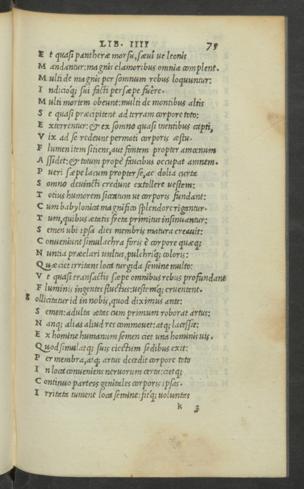 LIB. IIII 75
E t quasi pantheræ morsu, sæui ue leonis
M andantur: magnis clamoribus omnia complent.
M ulti de magnis per somnum rebus loquuntur:
I ndicioq; sui facti persæpe fuêre.
M ulti mortem obeunt: multi de montibus altis
S e quasi præcipitent ad terram corpore toto:
E xterrentur: & ex somno quasi mentibus capti,
V ix ad se redeunt permoti corporis æstu.
F lumen item sitiens, aut fontem propter amœnum
A ssidet: & totum propè faucibus occupat amnem.
P ueri sæpe lacum propter se, ac dolia curta
S omno deuincti credunt extollere uestem:
T otius humorem saccatum ut corporis fundant:
C um babylonica magnifico splendore rigantur.
T um, quibus ætatis freta primitus insinuantur:
S emen ubi ipsa dies membris matura creauit:
C onueniunt simulachra foris è corpore quæq;
N untia præclari uultus, pulchriq; coloris:
Q uæ ciet irritans loca turgida semine multo:
V t quasi transactis sæpe omnibus rebus profundant
F luminis ingentes fluctus: uestemq; cruentent.
S ollicitatur id in nobis, quod diximus ante:
S emen: adulta ætas cum primum roborat artus:
N anq; alias aliud res commouet: atq; lacessit:
E x homine humanum semen ciet una hominis uis.
Q uod simulatq; suis eiectum sedibus exit:
P er membra, atq; artus decedit corpore toto
I n loca conueniens neruorum certa: cietq;
C ontinuo parteis genitales corporis ipsas.
I rritata tument loca semine: fitq; uoluntas
K 3